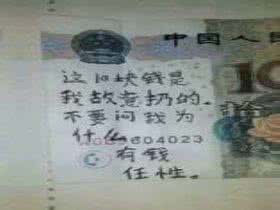 中国人民
10
拾
这10块钱是
我故意扔的.
不要问我为
什么
604023
有钱
任性.